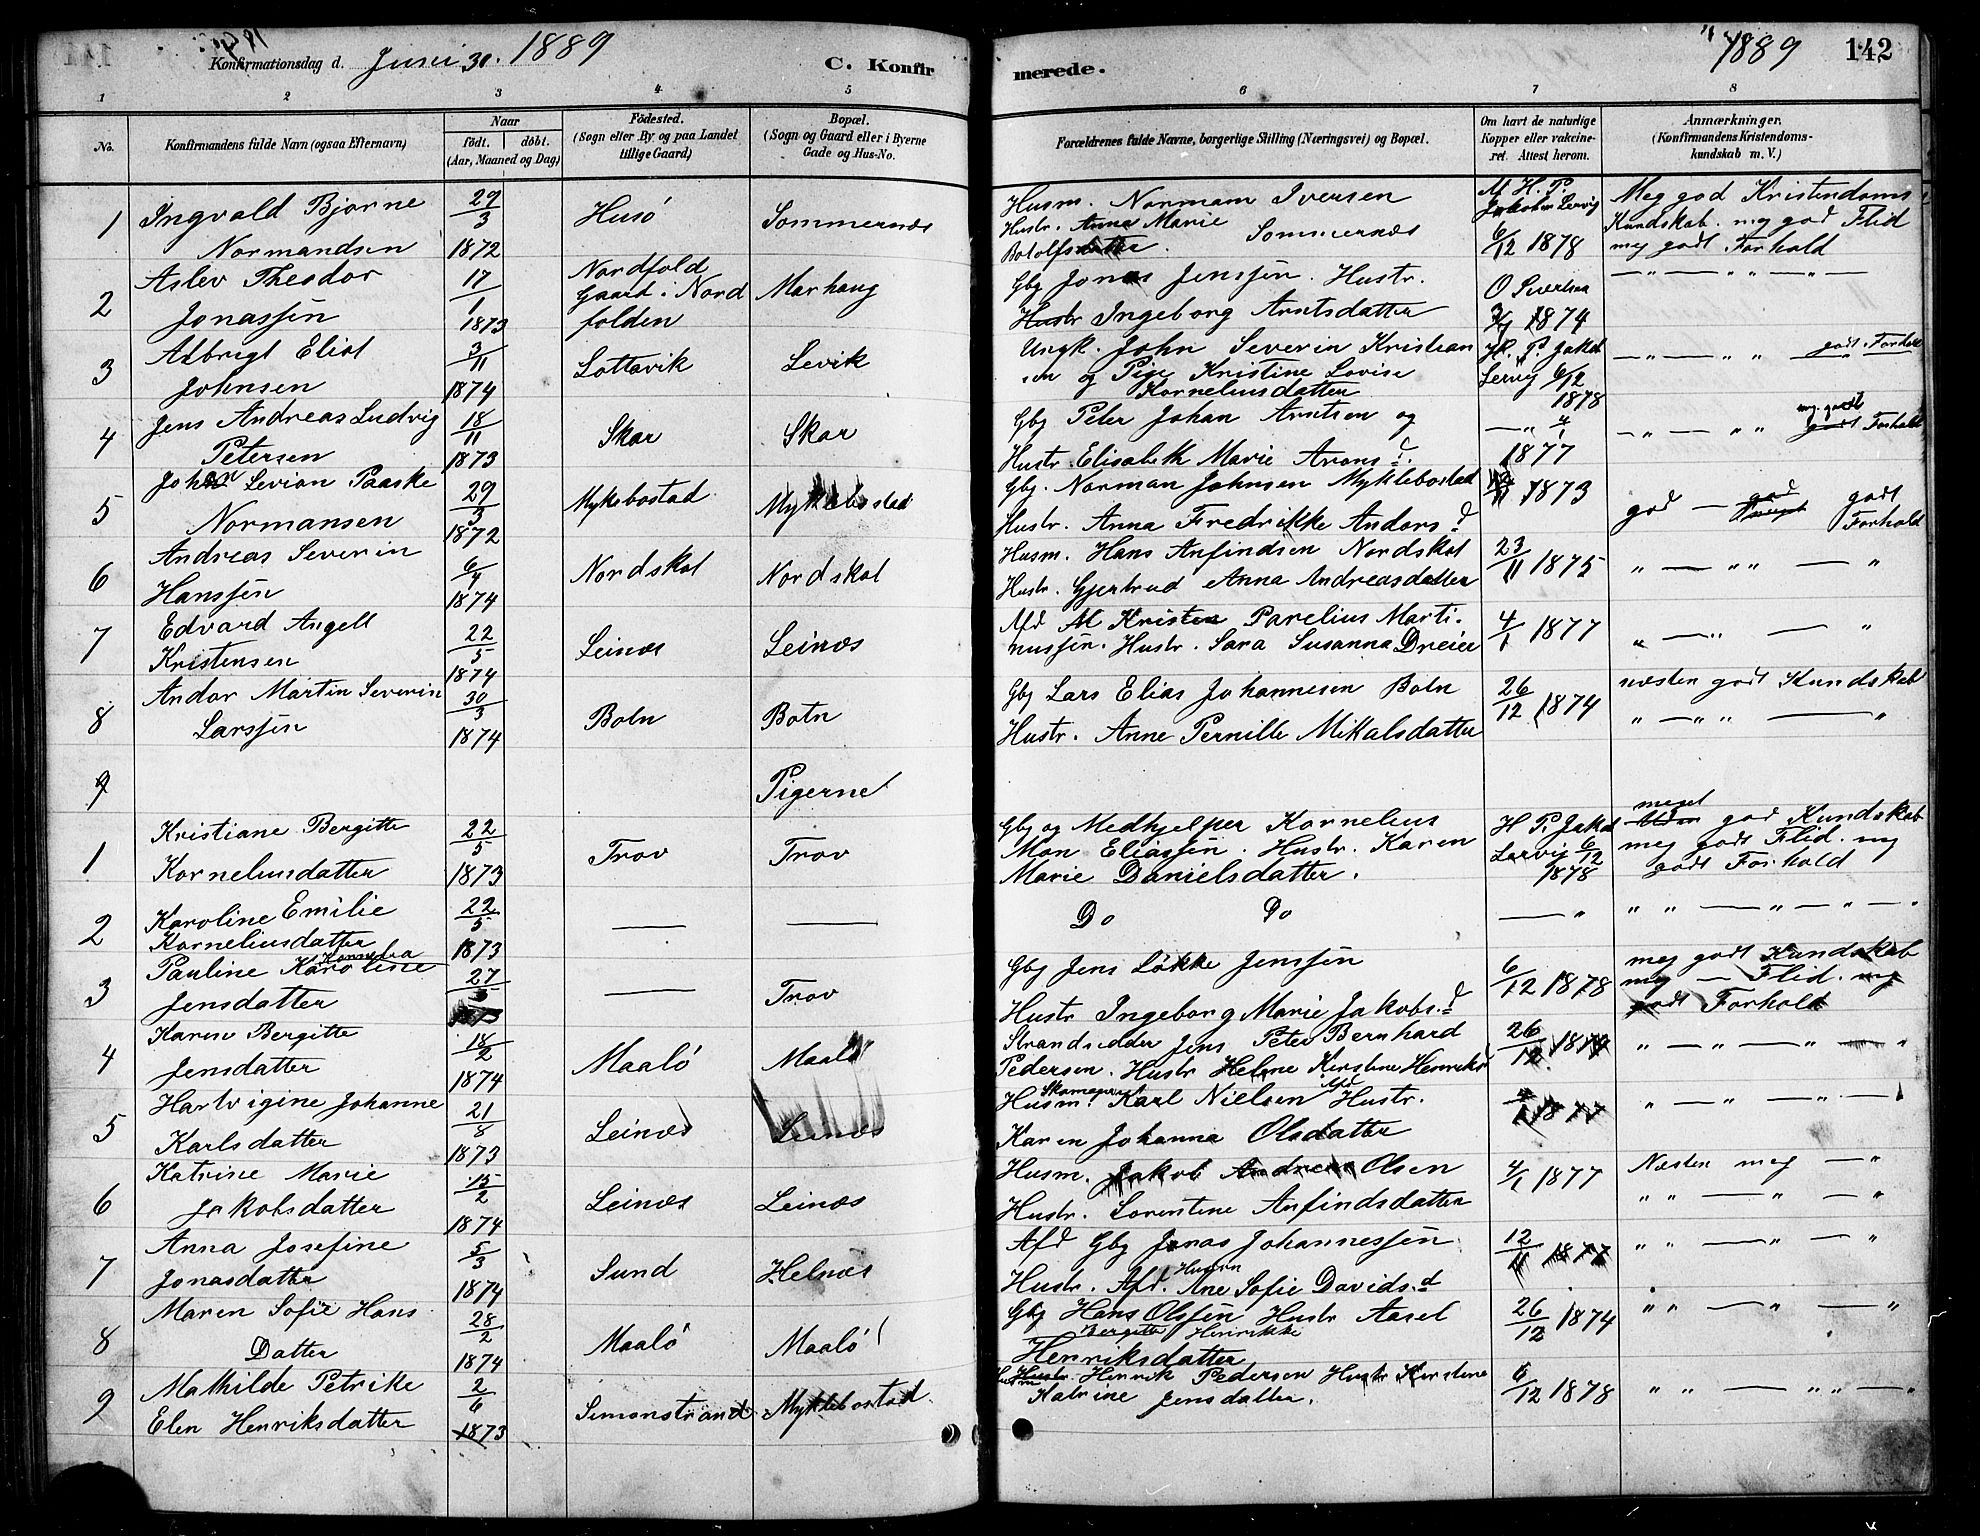 Konfirmationsdag d. Juni 30. 1889
C. Konfir
merede.
1889
142
1 2 3 4 5 6 7 8
No.
Konfirmandens fulde Navn (ogsaa Efternavn)
Naar
födt. döbt.
(Aar, Maaned og Dag)
Födested.
(Sogn eller By og paa Landet
tillige Gaard)
Bopæl.
(Sogn og Gaard eller i Byerne
Gade og Hus-No.
Forældrenes fulde Navne, borgerlige Stilling (Næringsvei) og Bopæl.
Om havt de naturlige
Kopper eller vakcine-
ret. Attest herom.
Anmærkninger.
(Konfirmandens Kristendoms-
kundskab m. V.)
1 Ingvald Bjarne
Normandsen
29/3 1872
Husö
Sommernæs
Husm. Normann Iversen
Hustr. Anna Marie
Sommernæs
6/12 1878
Meg god Kristendoms
Kundskab. meg god Flid
meg godt Forhold
2 Aslev Theodor
Jonassen
17/1 1873
Nordfold
Gaard i Nord
folden
Marhaug
Gbg Jonas Jenssen. Hustr.
Hustr Ingeborg Arntsdatter
1874
— „ — „ „ — „ —
3 Albrigt Eliot
Johnsen
3/11 1874
Lottavik
Levik
Ungk. John Severin Kristian
sen og Pige Kristine Lovise
Kornelinsdatter
H. P. Jakob
Lervig 6/12
1878
— „ — „ „ godt. Forhold
4 Jens Andreas Ludvig
Petersen
18/11 1873
Skar
Skar
Gbg Peter Johan Arntsen og
Hustr. Elisabeth Marie Arons d.
— „ 4/1
1877
— „ — „ „ meg. godt godt Forhold
5 Johan Levion Paaske
Normansen
29/3 1872
Myklebostad
Myklebostad
Gbg. Norman Johnsen Myklebostad
Hustr. Anna Fredrikke Andors d
1873
god — god godt
Forhold
6 Andreas Severin
Hanssen
6/7 1874
Nordskot
Nordskot
Husm. Hans Anfindsen Nordskot
Hustr. Gjertrud Anna Andreasdatter
23/11 1875
„ — „ „ — „
7 Edvard Angell
Kristensen
22/5 1874
Leinæs
Leinæs
Afd M Kristen Parelius Marti-
nussen. Hustr. Sara Susanna Dreier
4/1 1877
„ — „ — „
8 Andor Martin Severin
Larssen
30/3 1874
Botn
Botn
Gbg Lars Elias Johannesen Botn
Hustr. Anne Pernille Mikalsdatter
26/12 1874
næsten godt Kundskab
„ — „ „ — „
9
Pigerne
1 Kristiane Bergitte
Kornelinsdatter
22/5 1873
Trov
Trov
Gbg og Medhjelper Kornelius
Mon Eliassen. Hustr. Karen
Marie Danielsdatter.
H P. Jakob
Lervig 6/12
1878
meget god Kundskab
meg godt Flid. meg
godt Forhold
2 Karoline Emilie
Korneliusdatter
22/5 1873
—
—
Do Do
— „
„ „ — „ — „ — „
3 Pauline Karoline
Jensdatter
27/5
—
Trov
Gbg Jens Løkke Jenssen
Hustr Ingeborg Marie Jakobs. d
6/12 1878
meg godt Kundskab
meg — Flid. meg
godt Forhold
4 Karen Bergitte
Jensdatter
18/2 1874
Maalö
Maalö
Strandsidder Jens Peter Bernhard
Pedersen. Hustr Helene Kirstine Henriks d
26/12
„ — „ — „ — „
5 Hartvigine Johanne
Karlsdatter
21/8 1873
Leinæs
Leinæs
Husm. Skomager Karl Nielsen Afd Hustr.
Karen Johanna Olsdatter
4/1 1877
„ — „ — „ —
6 Katrine Marie
Jakobsdatter
15/2 1874
Leinæs
Leinæs
Husm. Jakob Andreas Olsen
Hustr. Lorentine Anfindsdatter
4/1 1877
Næsten meg — „
„ „ — „ — „
7 Anna Josefine
Jonasdatter
5/3 1874
Sund
Helnæs
Afd Gbg Jonas Johannessen
Hustr. Afd. Husm Ane Sofie Davids. d
12/11 1877
„ „ — „ — „
8 Maren Sofie Hans
Datter
28/2 1874
Maalö
Maalö
Gbg Hans Olssen Hustr Aasel
Bergitte Henrikke
Henriksdatter
26/12 1874
„ „ — „ — „
9 Mathilde Petrike
Elen Henriksdatter
2/6 1873
Simonstrand
Myklebostad.
Husm Hustr. Henrik Pedersen Hustr Kirstine
Katrine Jensdatter.
6/12 1878
„ „ — „ „ — „